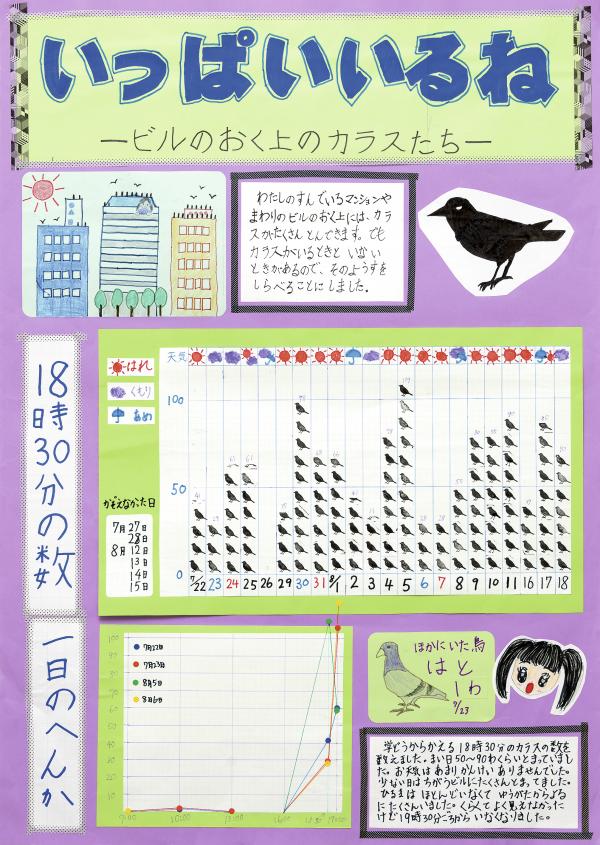 いっぱいいるね
―ビルのおく上のカラスたち―
わたしのすんでいるマンションや
まわりのビルのおく上には、カラ
スがたくさんとんできます。でも
カラスがいるときと いない
ときがあるので、そのようすを
しらべることにしました。
18時30分の数
天気
はれ
くもり
あめ
100
50
0
かぞえなかった日
7月27日
28日
8月12日
13日
14日
15日
7/22 23 24 25 26 29 30 31 8/1 2 3 4 5 6 7 8 9 10 11 16 17 18
一日のへんか
100
90
80
70
60
50
40
30
20
10
7月22日
7月23日
8月5日
8月6日
ほかにいた鳥
はと
1わ
7/23
学どうからかえる18時30分のカラスの数を
数えました。まい日50〜90わくらいとまっていまし
た。お天気はあまりかんけいありませんでした。
少ない日はちがうビルにたくさんとまってました。
ひるまはほとんどいなくて ゆうがたからよる
にたくさんいました。くらくてよく見えなかった
けど19時30分ころから いなくなりました。